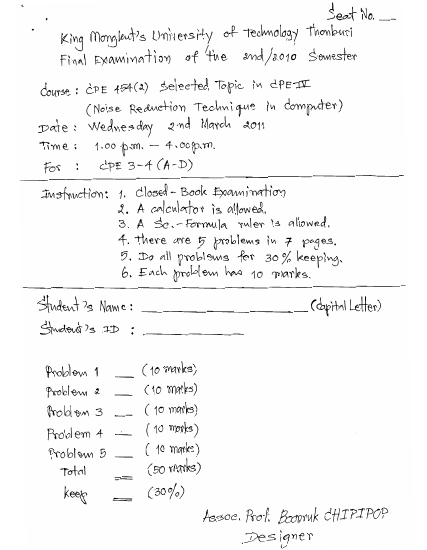 Seat No. __
King Mongkut's University of Technology Thonburi
Final Examination of the 2nd/2010 Semester
Course : CPE 454(2) Selected Topic in CPE-IV
(Noise Reduction Technique in Computer)
Date : Wednesday 2nd March 2011
Time : 1.00 p.m. — 4.00 p.m.
For : CPE 3-4 (A-D)
Instruction: 1. Closed-Book Examination
2. A calculator is allowed.
3. A Sc.-Formula ruler is allowed.
4. There are 5 problems in 7 pages.
5. Do all problems for 30% keeping.
6. Each problem has 10 marks.
Student's Name: ____________ (Capital Letter)
Student's ID : ____________
Problem 1 __ (10 marks)
Problem 2 __ (10 marks)
Problem 3 __ (10 marks)
Problem 4 __ (10 marks)
Problem 5 __ (10 marks)
Total __ (50 marks)
Keep __ (30%)
Assoc. Prof. CHIPIPOP
Designer